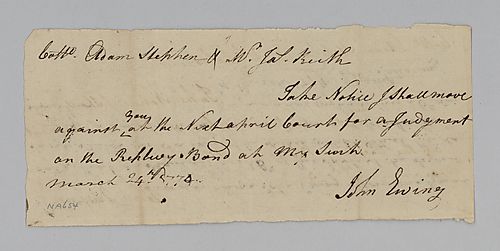 Collo. Adam Stephen & Mr. Jas. Keith
Take Notice I shall move
against you at the Next april Court for a Judgment
on the Replevy Bond at My Suit
March 24th 177
John Ewing
NA654